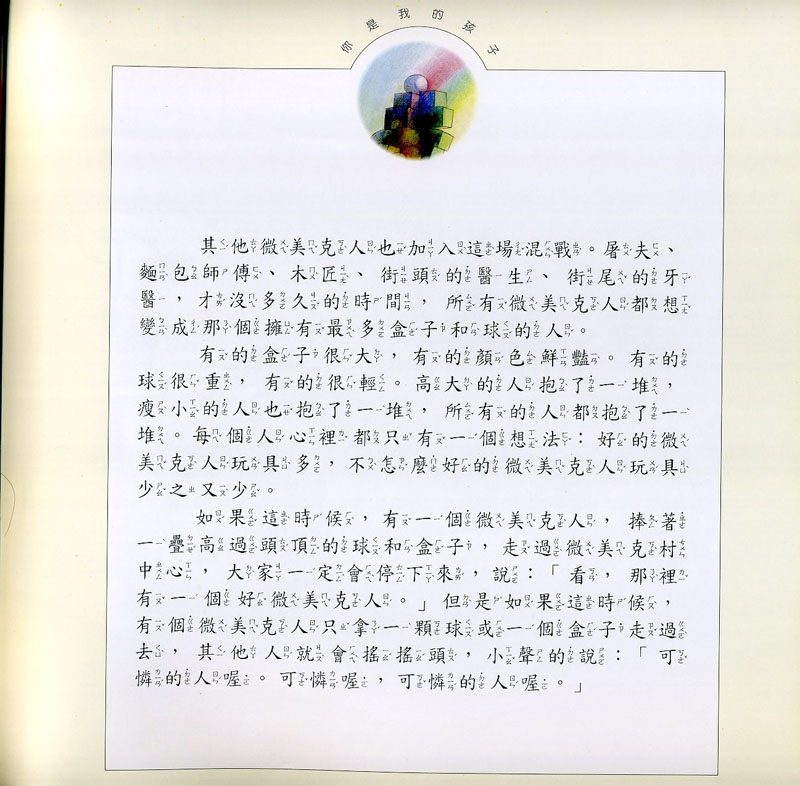 你是我的孩子
其他微美克人也加入這場混戰。屠夫、
麵包師傅、木匠、街頭的醫生、街尾的牙
醫，才沒多久的時間，所有微美克人都想
變成那個擁有最多盒子和球的人。
有的盒子很大，有的顏色鮮豔。有的
球很重，有的很輕。高大的人抱了一堆，
瘦小的人也抱了一堆，所有的人都抱了一
堆。每個人心裡都只有一個想法：好的微
美克人玩具多，不怎麼好的微美克人玩具
少之又少。
如果這時候，有一個微美克人，捧著
一疊高過頭頂的球和盒子，走過微美克村
中心，大家一定會停下來，說：「看，那裡
有一個好微美克人。」但是如果這時候，
有個微美克人只拿一顆球或一個盒子走過
去，其他人就會搖搖頭，小聲的說：「可
憐的人喔。可憐喔，可憐的人喔。」